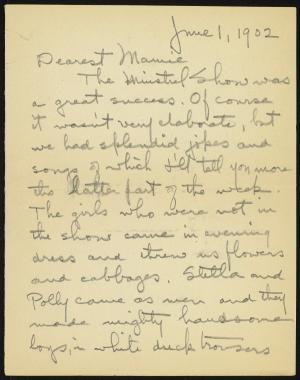 June 1, 1902
Dearest Mamie
The Minstrel Show was
a great success. Of course
it wasn't very elaborate, but
we had splendid jokes and
songs of which I'll tell you more
the latter part of the week.
The girls who were not in
the show came in evening
dress and threw us flowers
and cabbages. Stella and
Polly came as men and they
made mighty handsome
boys, in white duck trousers